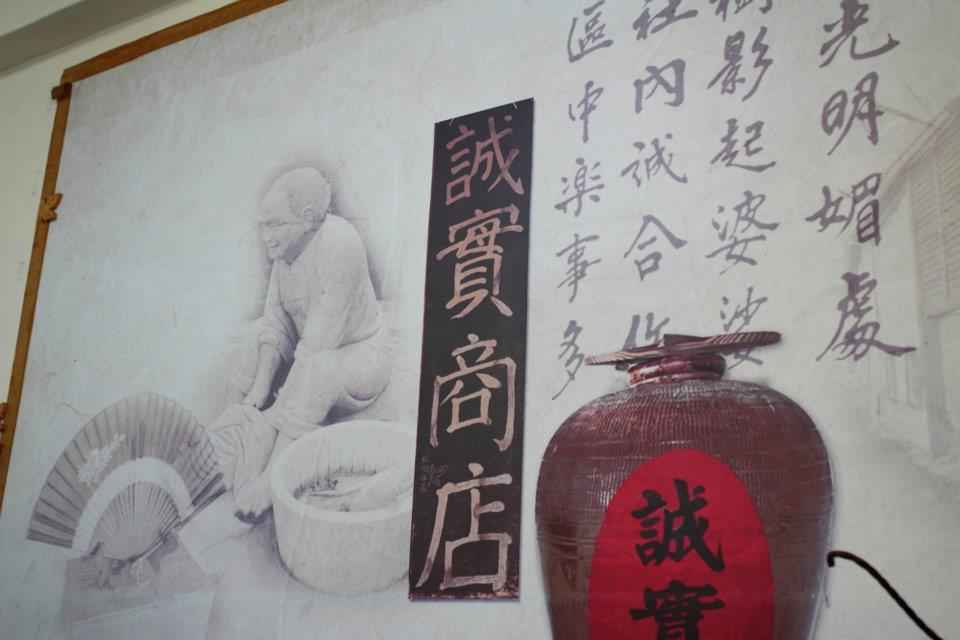 光明媚處
樹影起婆娑
社內誠合作
區中楽事多
誠實商店
誠實